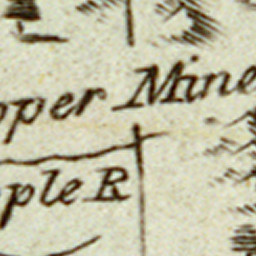 pper Mine
ple R